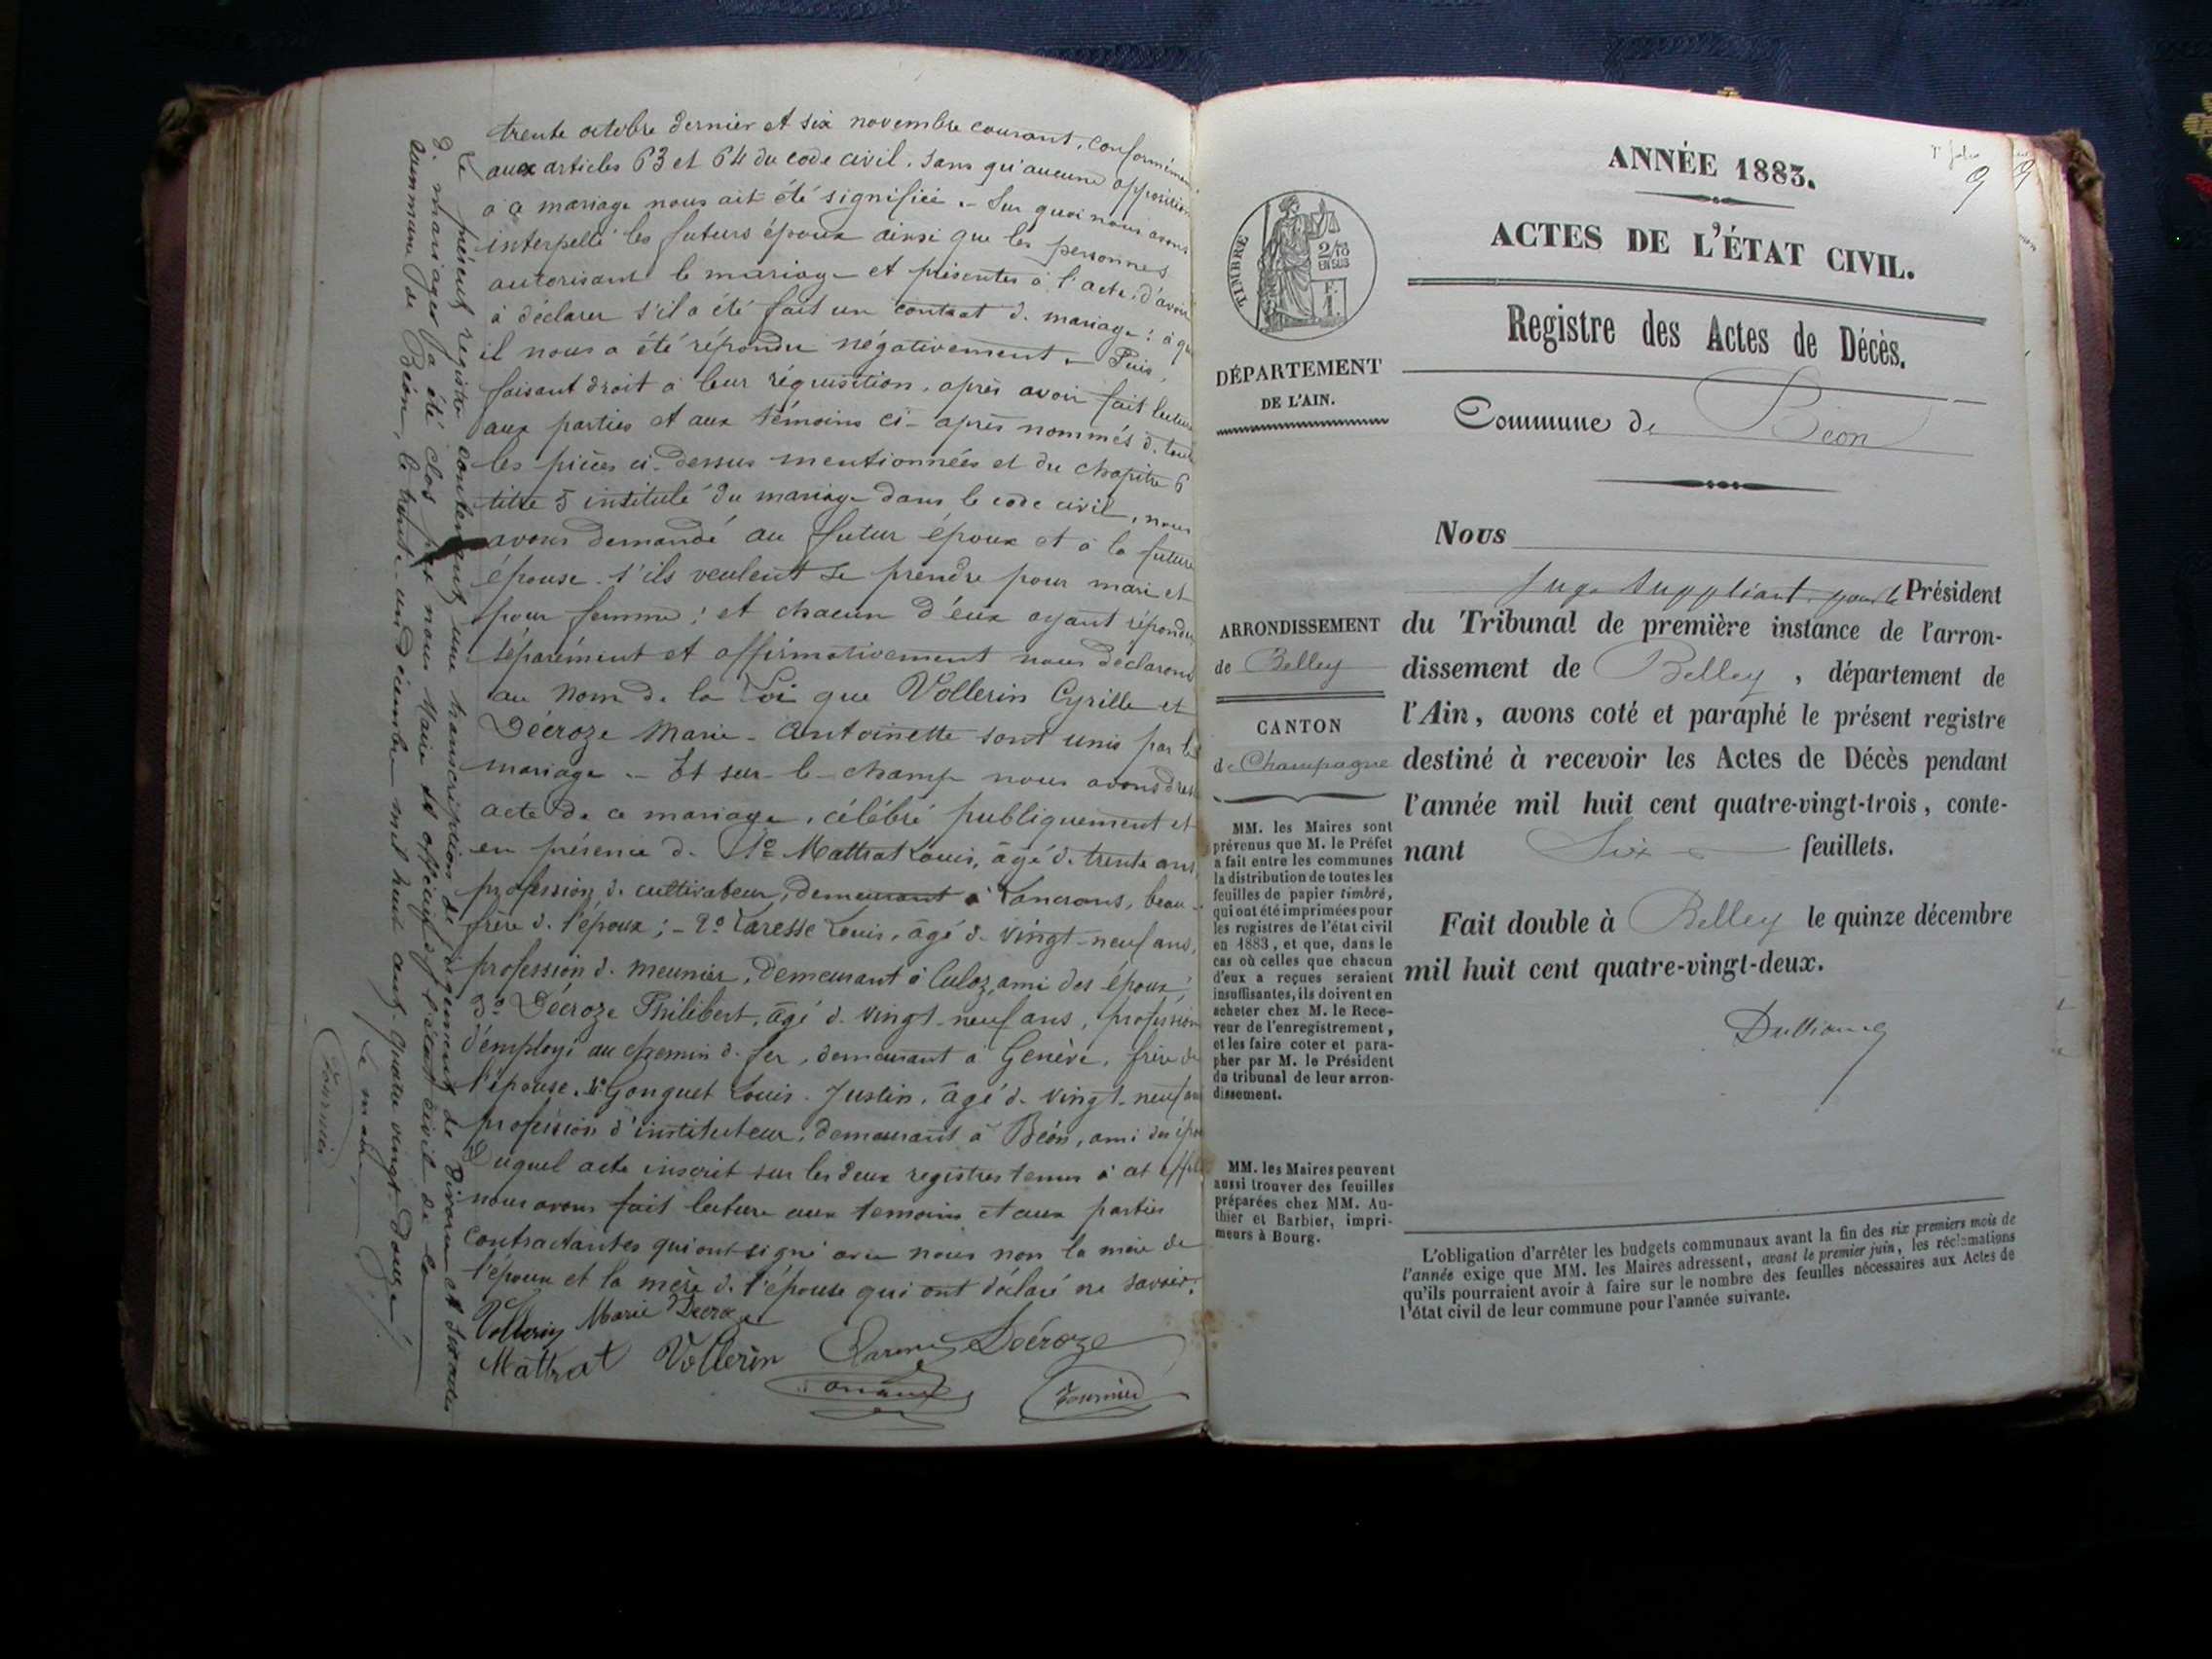 trente octobre dernier et six novembre courant, conformément
aux articles 63 et 64 du code civil, sans qu'aucune opposition
à ce mariage nous ait été signifiée. - Sur quoi nous avons
interpellé les futurs époux ainsi que les personnes
autorisant le mariage et présentes à l'acte, d'avoir
à déclarer s'il a été fait un contrat de mariage ; à quoi
il nous a été répondu négativement. - Puis,
faisant droit à leur réquisition, après avoir fait lecture
aux parties et aux témoins ci-après nommés de toutes
les pièces ci-dessus mentionnées et du chapitre 6
titre 5 intitulé du mariage dans le code civil, nous
avons demandé au futur époux et à la future
épouse s'ils veulent se prendre pour mari et
pour femme ; et chacun d'eux ayant répondu
séparément et affirmativement nous déclarons
au nom de la Loi que Vollerin Cyrille et
Décroze Marie-Antoinette sont unis par le
mariage. - Et sur-le-champ nous avons dressé
acte de ce mariage, célébré publiquement et
en présence de 1o Mattrat Louis, âgé de trente ans,
profession de cultivateur, demeurant à Lancrans, beau-
frère de l'époux ; - 2o Laresse Louis, âgé de vingt-neuf ans,
profession de meunier, demeurant à Culoz, ami des époux ;
3o Décroze Philibert, âgé de vingt-neuf ans, profession
d'employé au chemin de fer, demeurant à Genève, frère de
l'épouse. 4o Gonguet Louis-Justin, âgé de vingt-neuf ans
profession d'instituteur, demeurant à Béon, ami des époux
Duquel acte inscrit sur les deux registres tenus à cet effet
nous avons fait lecture aux temoins et aux parties
contractantes qui ont signé avec nous non la mère de
l'époux et la mère de l'épouse qui ont déclaré ne savoir.
Vollerin Marie Decroze
Mattrat Vollerin Décroze
Fournier
Le présent registre contenant une transcription de jugement de Divorce et actes
de mariages a été clos par nous Maire et officier de l'état civil de la
commune de Béon, le trente-un Décembre mil huit cent quatre vingt-Douze
Le maire,
Fournier
ANNÉE 1883.
9
ACTES DE L'ÉTAT CIVIL.
Registre des Actes de Décès.
Commune de Béon
TIMBRE
2/10
EN SUS
F.
1.
DÉPARTEMENT
DE L'AIN.
ARRONDISSEMENT
de Belley
CANTON
de Champagne
MM. les Maires sont
prévenus que M. le Préfet
a fait entre les communes
la distribution de toutes les
feuilles de papier timbré,
qui ont été imprimées pour
les registres de l'état civil
en 1883, et que, dans le
cas où celles que chacun
d'eux a reçues seraient
insuffisantes, ils doivent en
acheter chez M. le Rece-
veur de l'enregistrement,
et les faire coter et para-
pher par M. le Président
du tribunal de leur arron-
dissement.
MM. les Maires peuvent
aussi trouver des feuilles
préparées chez MM. Au-
thier et Barbier, impri-
meurs à Bourg.
Nous
Juge Suppléant, pour le Président
du Tribunal de première instance de l'arron-
dissement de Belley, département de
l'Ain, avons coté et paraphé le présent registre
destiné à recevoir les Actes de Décès pendant
l'année mil huit cent quatre-vingt-trois, conte-
nant Six feuillets.
Fait double à Belley le quinze décembre
mil huit cent quatre-vingt-deux.
L'obligation d'arrêter les budgets communaux avant la fin des six premiers mois de
l'année exige que MM. les Maires adressent, avant le premier juin, les réclamations
qu'ils pourraient avoir à faire sur le nombre des feuilles nécessaires aux Actes de
l'état civil de leur commune pour l'année suivante.